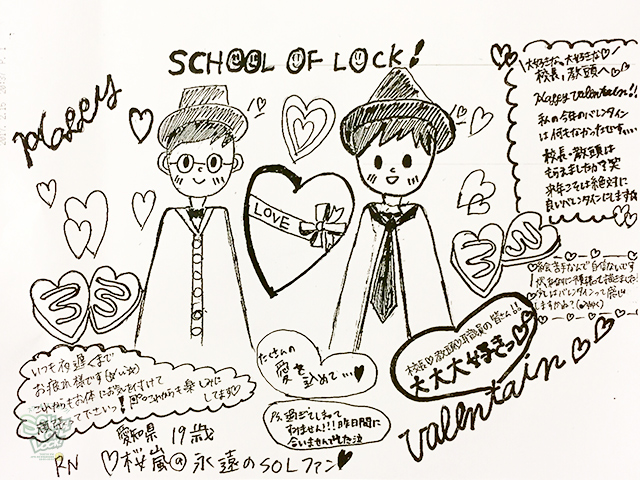 SCHOOL OF LOCK!
Happy
大好きな、大好きな♡
校長、教頭へ♡
Happy Valentain!!
私の今年のバレンタイン
は何もなかったです、、、
校長・教頭は
もらえましたか?笑
来年こそは絶対に
良いバレンタインにしますね
LOVE
絵苦手なんで自信ないです
します
いつも夜遅くまで
お疲れ様です
これからもお体にお気を付けて
頑張って下さいっ!これからも楽しみに
してます♡
たくさんの
愛を
込めて…♥
校長♡教頭♡職員の皆さん!!
大大大好きっ♡
遅過ぎてしまって
すみません!!!昨日間に
合いませんでした泣
Valentain♡♡
愛知県 19歳
RN ♡桜嵐@永遠のSOLファン♥